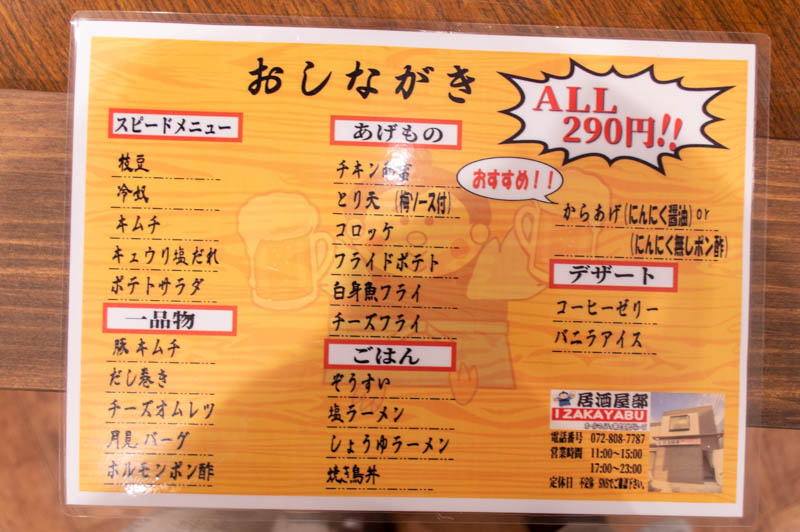 おしながき
ALL
290円!!
スピードメニュー
枝豆
冷奴
キムチ
キュウリ塩だれ
ポテトサラダ
一品物
豚キムチ
だし巻き
チーズオムレツ
月見バーグ
ホルモンポン酢
あげもの
チキン南蛮
とり天 (梅ソース付)
コロッケ
フライドポテト
白身魚フライ
チーズフライ
ごはん
ぞうすい
塩ラーメン
しょうゆラーメン
焼き鳥丼
おすすめ!!
からあげ(にんにく醤油)or
(にんにく無しポン酢)
デザート
コーヒーゼリー
バニラアイス
居酒屋部
IZAKAYABU
電話番号 072-808-7787
営業時間 11:00~15:00
17:00~23:00
定休日 不定休 SNSでご確認下さい。